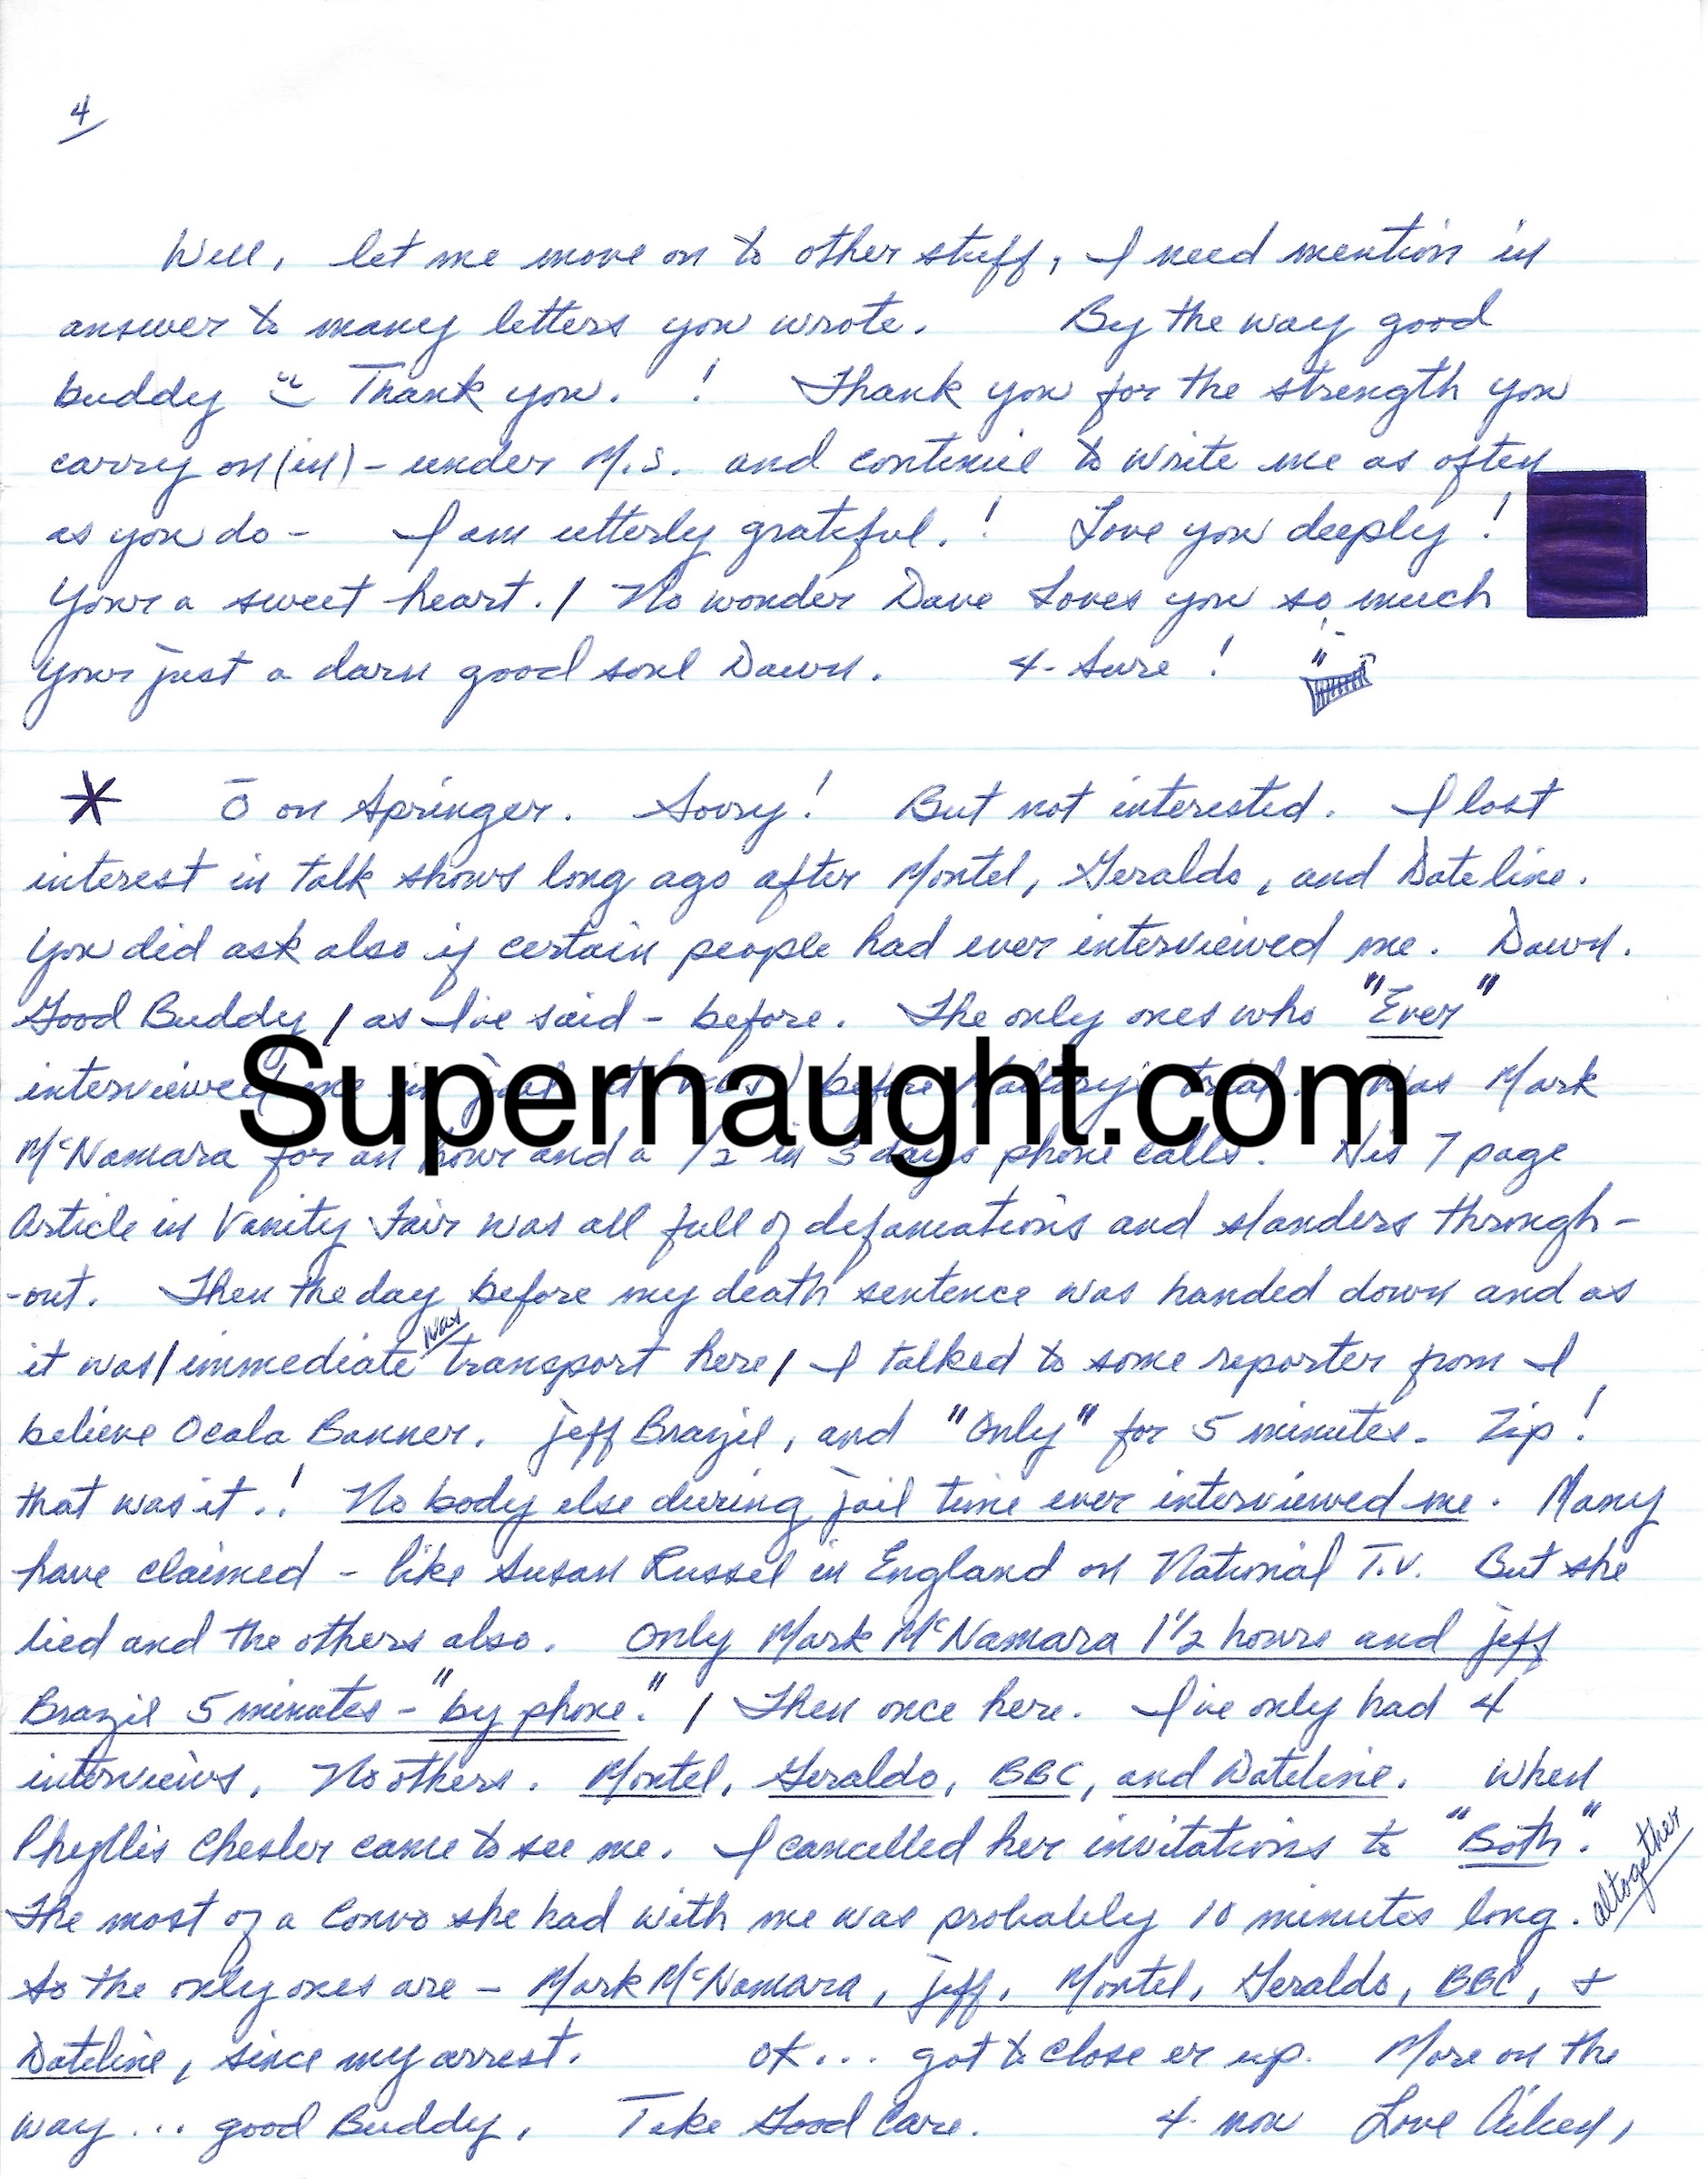 4
Well, let me move on to other stuff, I need mention in
answer to many letters you wrote. By the way good
buddy Thank you. ! Thank you for the strength you
carry on (in) - under M.S. and continue to write me as often
as you do - I am utterly grateful. ! Love you deeply !
Your a sweet heart. ! No wonder Dave Loves you so much
your just a darn good soul Dawn. 4- Sure !
* O on Springer. Sorry! But not interested. I lost
interest in talk shows long ago after Montel, Geraldo, and Dateline.
You did ask also if certain people had ever interviewed me. Dawn.
Good Buddy / as I've said - before. The only ones who "Ever"
interviewed me in jail before Mallory's trial. Was Mark
Supernaught.com
McNamara for an hour and a 1/2 in 3 days phone calls. His 7 page
Article in Vanity Fair was all full of defamations and slanders through-
-out. Then the day before my death sentence was handed down and as
it was / immediate was transport here / I talked to some reporter from I
believe Ocala Banner. jeff Brazil, and "Only" for 5 minutes. Zip !
that was it. ! No body else during jail time ever interviewed me. Many
have claimed - like Susan Russel in England on National T.V. But she
lied and the others also. Only Mark McNamara 1 1/2 hours and jeff
Brazil 5 minutes - "by phone." / Then once here. I've only had 4
interviews. No others. Montel, Geraldo, BBC, and Dateline. When
Phyllis Chesler came to see me. I cancelled her invitations to "Both".
The most of a Convo she had with me was probably 10 minutes long. altogether
So the only ones are - Mark McNamara, jeff, Montel, Geraldo, BBC, +
Dateline, since my arrest. OK... got to close er up. More on the
way... good Buddy, Take Good Care. 4- now Love Aileen,